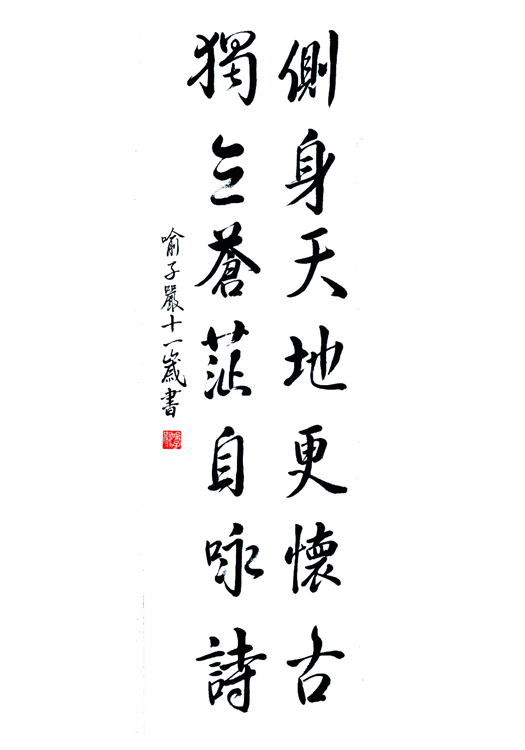 側身天地更懷古
獨立蒼茫自咏詩
喻子嚴十一歲書